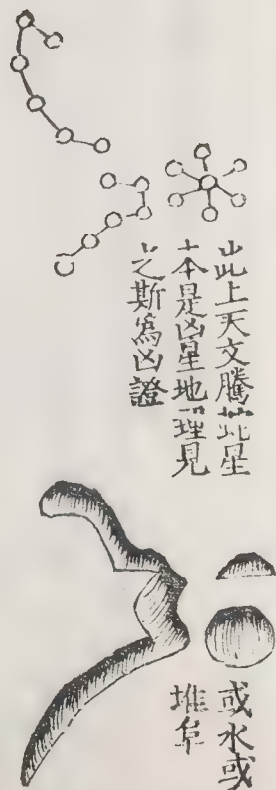 此上天文騰蛇星
本是凶星地理見
之斯為凶證
或水或
堆阜